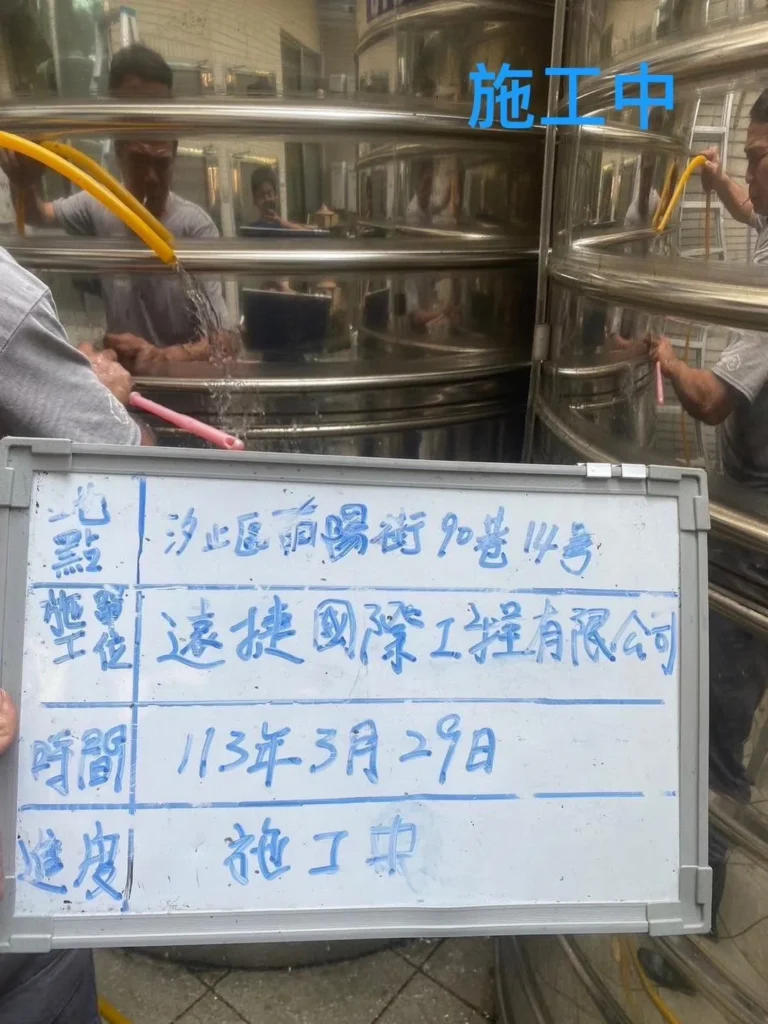 施工中
地點 汐止區萌陽街90巷14号
施工單位 遠捷國際工程有限公司
時間 113年3月29日
進度 施工中